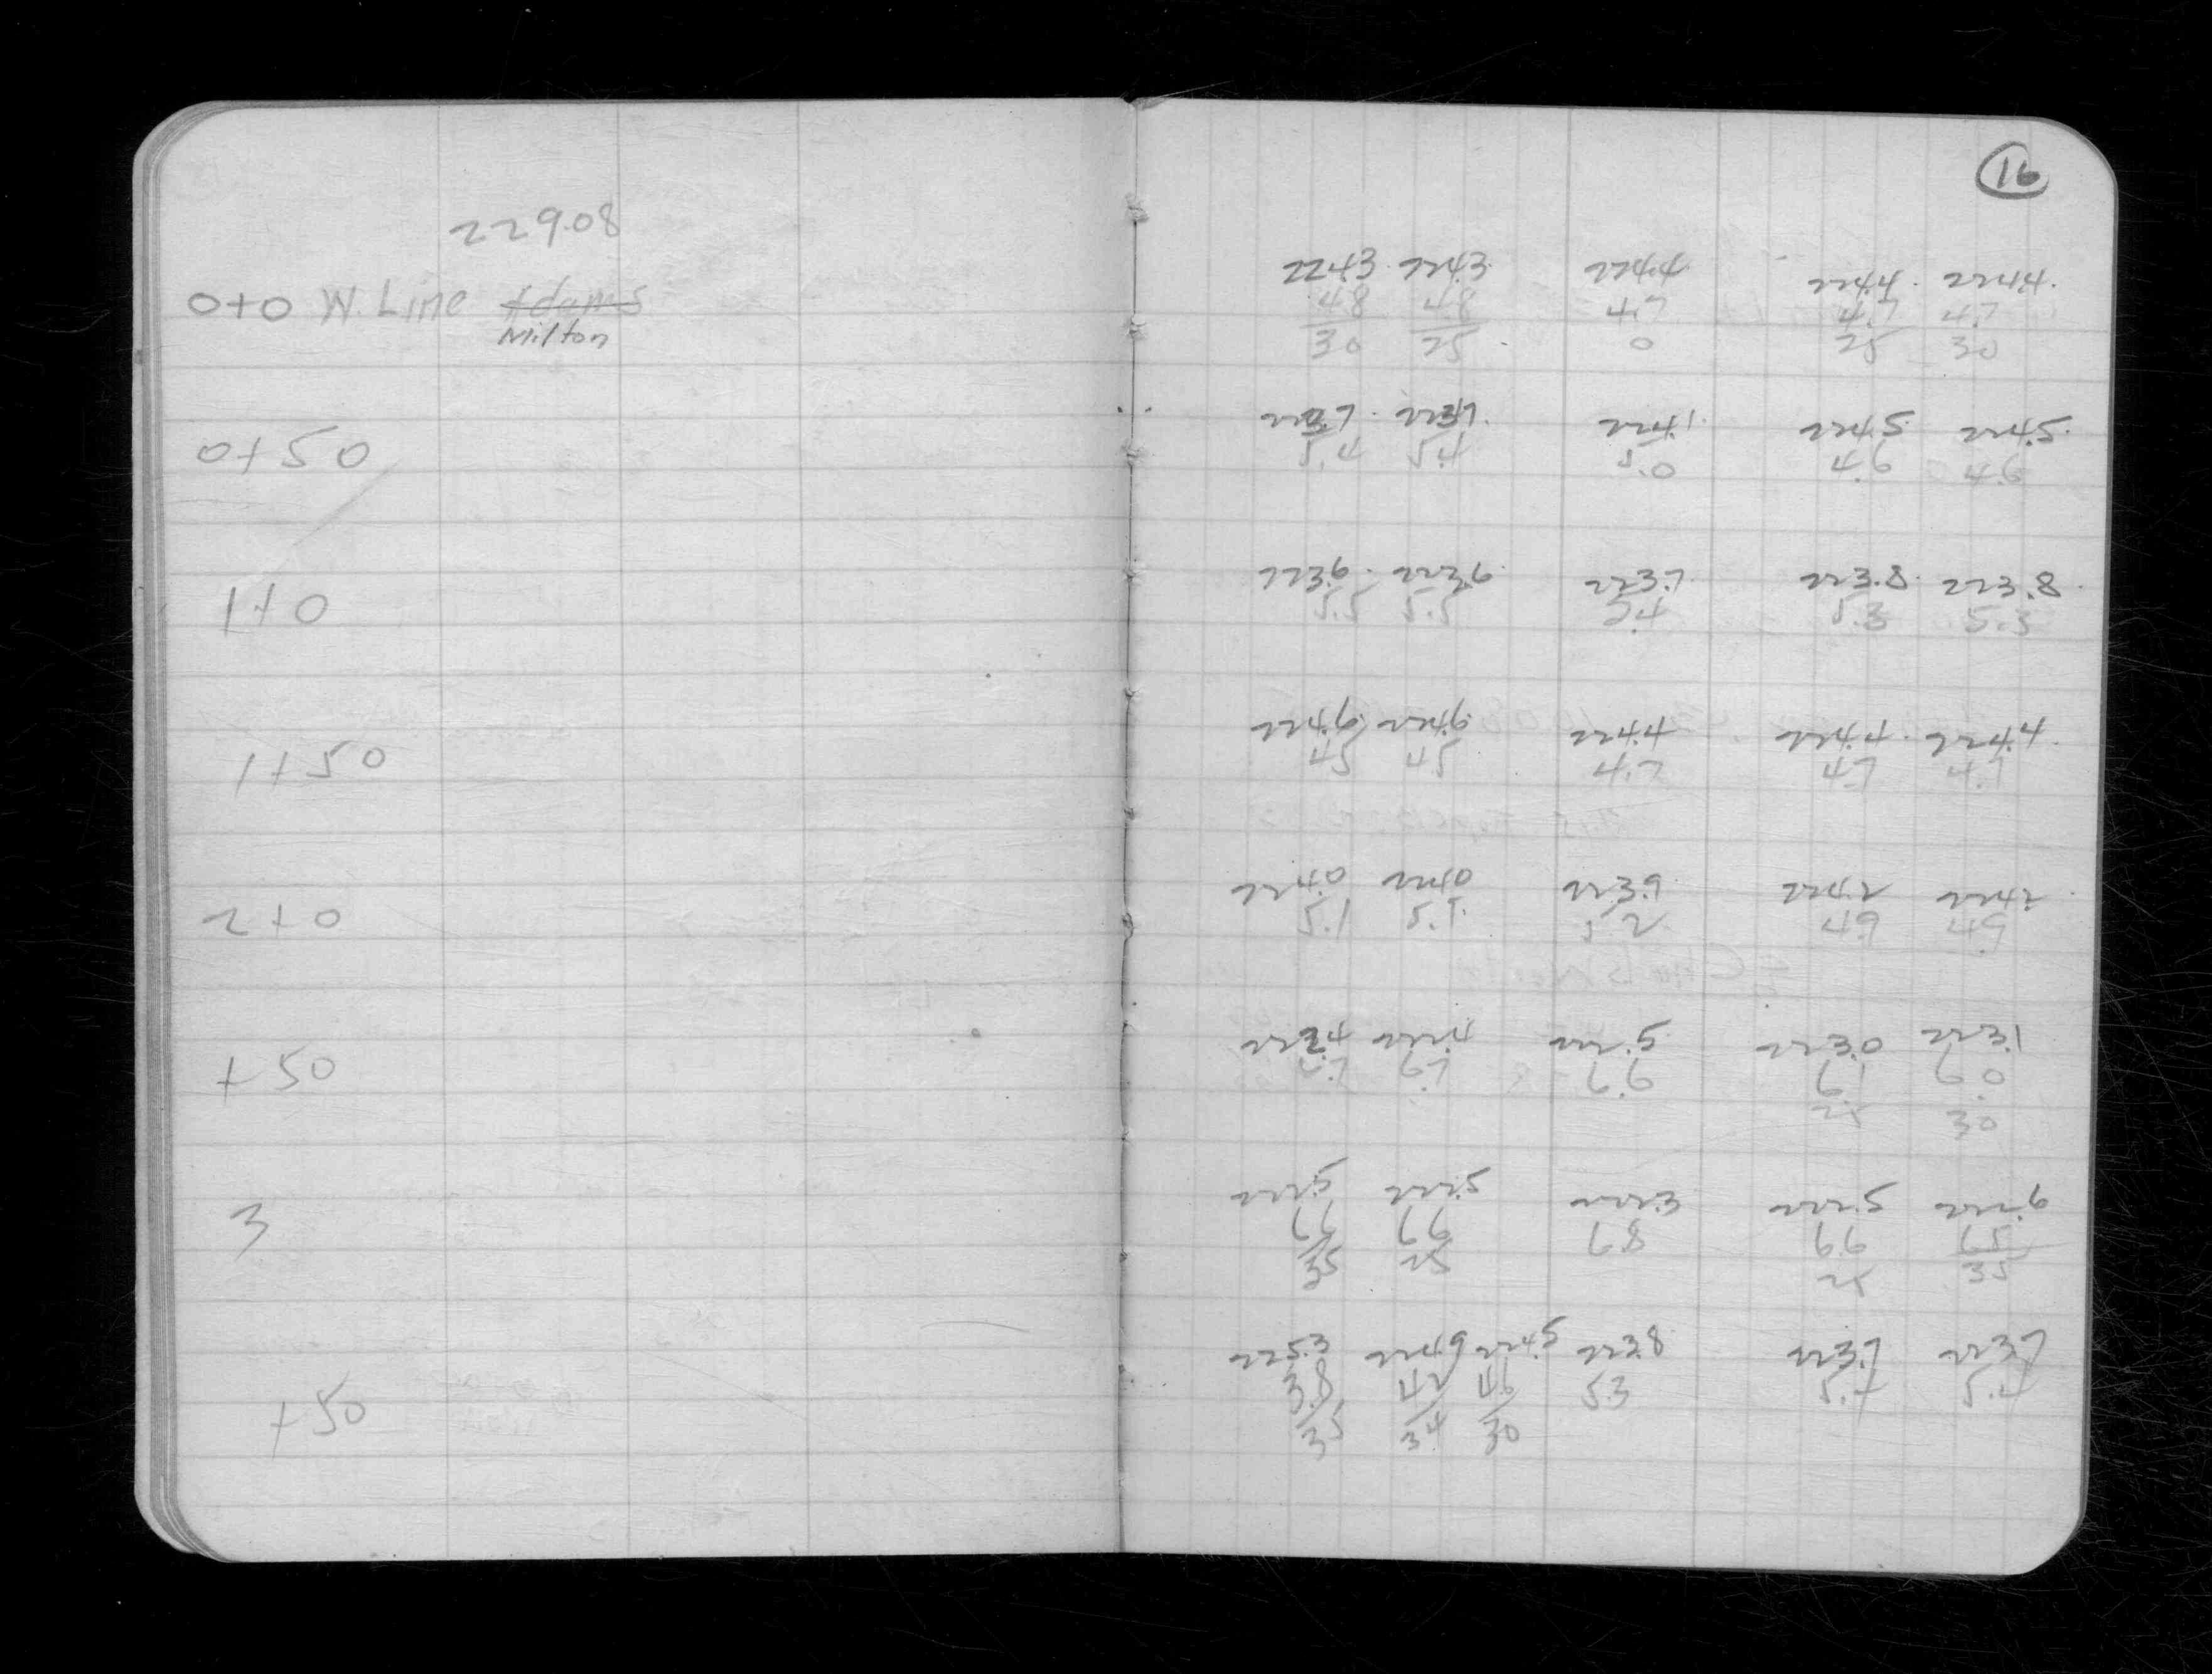 16
229.08
0+0 W. Line Adams
Milton
0+50
1+0
1+50
2+0
+50
3
+50
224.3 224.3 224.4 224.4 224.4
4.8 4.8 4.7 4.7 4.7
30 25 0 25 30
223.7 223.7 224.1 224.5 224.5
5.4 5.4 5.0 4.6 4.6
223.6 223.6 223.7 223.8 223.8
5.5 5.5 5.4 5.3 5.3
224.6 224.6 224.4 224.4 224.4
4.5 4.5 4.7 4.7 4.7
224.0 224.0 223.9 224.2 224.2
5.1 5.1 5.2 4.9 4.9
222.4 222.5 223.0 223.1
6.7 6.6 6.1 6.0
25 30
222.5 222.5 222.3 222.5 222.6
6.6 6.6 6.8 6.6 6.5
35 25 25 35
225.3 224.9 224.5 223.8 223.7 223.7
3.8 4.2 4.6 5.3 5.4 5.4
35 34 30